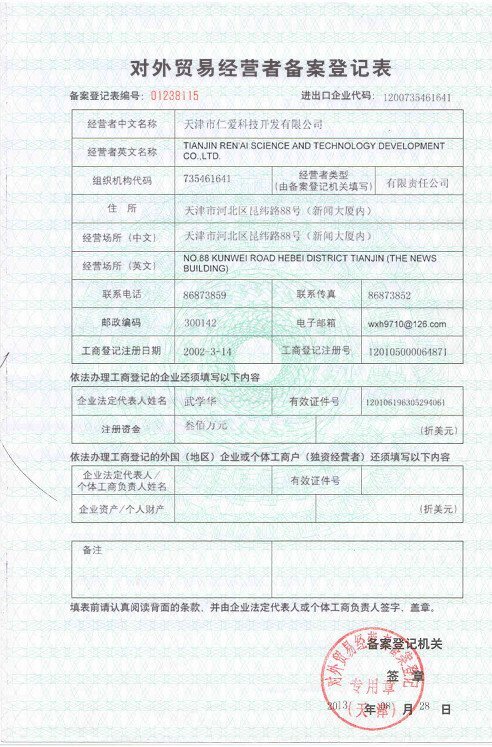 对外贸易经营者备案登记表
备案登记表编号：01238115 进出口企业代码：1200735461641
经营者中文名称 天津市仁爱科技开发有限公司
经营者英文名称 TIANJIN REN'AI SCIENCE AND TECHNOLOGY DEVELOPMENT CO.,LTD.
组织机构代码 735461641 经营者类型（由备案登记机关填写） 有限责任公司
住 所 天津市河北区昆纬路88号（新闻大厦内）
经营场所（中文） 天津市河北区昆纬路88号（新闻大厦内）
经营场所（英文） NO.88 KUNWEI ROAD HEBEI DISTRICT TIANJIN (THE NEWS BUILDING)
联系电话 86873859 联系传真 86873852
邮政编码 300142 电子邮箱 wxh9710@126.com
工商登记注册日期 2002-3-14 工商登记注册号 120105000064871
依法办理工商登记的企业还须填写以下内容
企业法定代表人姓名 武学华 有效证件号 120106196305294061
注册资金 叁佰万元 (折美元)
依法办理工商登记的外国（地区）企业或个体工商户（独资经营者）还须填写以下内容
企业法定代表人/个体工商负责人姓名 有效证件号
企业资产/个人财产 (折美元)
备注
填表前请认真阅读背面的条款，并由企业法定代表人或个体工商负责人签字、盖章。
备案登记机关
签 章
2013 年 08 月 28 日
对外贸易经营者备案登记
专用章
（天津）